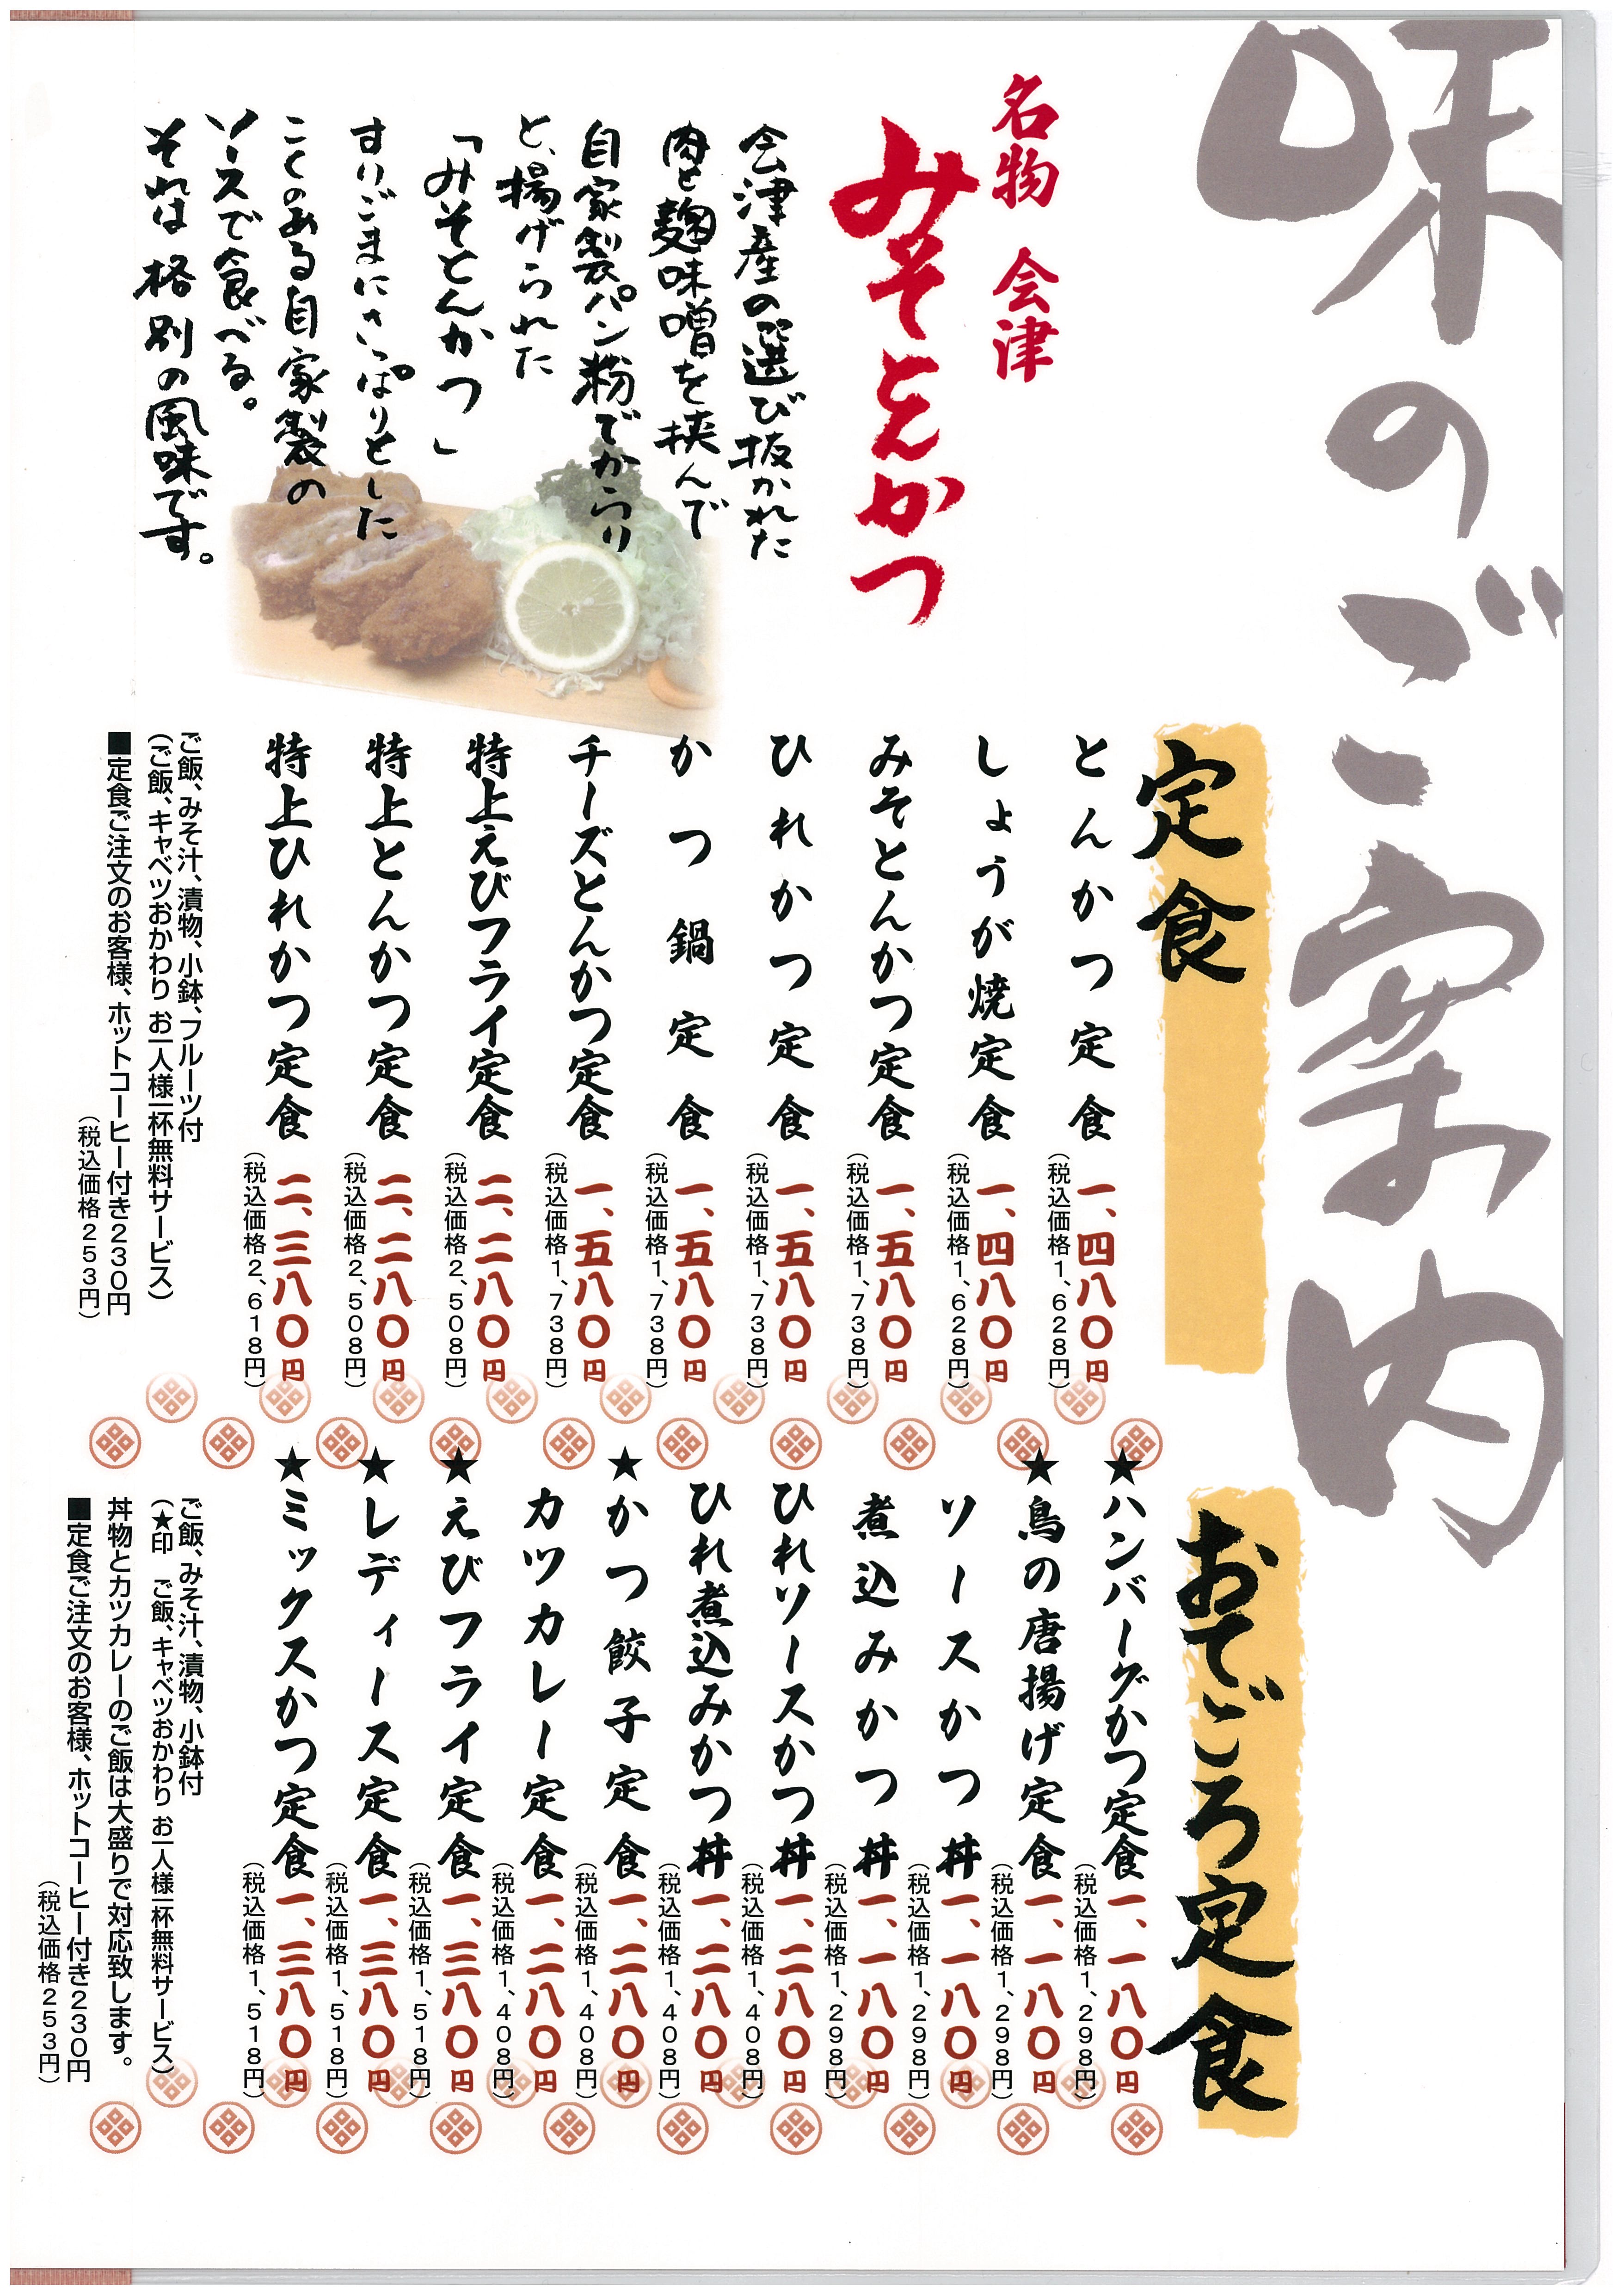 味のご案内
名物 会津
みそとんかつ
会津産の選び抜かれた
肉と麹味噌を挟んで
自家製パン粉でからり
と、揚げられた
「みそとんかつ」
すりごまにさっぱりとした
こくのある自家製の
ソースで食べる。
それは格別の風味です。
定食
とんかつ定食 一、四八〇円
(税込価格1、628円)
しょうが焼定食 一、四八〇円
(税込価格1、628円)
みそとんかつ定食 一、五八〇円
(税込価格1、738円)
ひれかつ定食 一、五八〇円
(税込価格1、738円)
かつ鍋定食 一、五八〇円
(税込価格1、738円)
チーズとんかつ定食 一、五八〇円
(税込価格1、738円)
特上えびフライ定食 二、二八〇円
(税込価格2、508円)
特上とんかつ定食 二、二八〇円
(税込価格2、508円)
特上ひれかつ定食 二、三八〇円
(税込価格2、618円)
ご飯、みそ汁、漬物、小鉢、フルーツ付
(ご飯、キャベツおかわり お一人様一杯無料サービス)
■定食ご注文のお客様、ホットコーヒー付き230円
(税込価格253円)
おてごろ定食
★ハンバーグかつ定食 一、一八〇円
(税込価格1、298円)
★鳥の唐揚げ定食 一、一八〇円
(税込価格1、298円)
ソースかつ丼 一、一八〇円
(税込価格1、298円)
煮込みかつ丼 一、一八〇円
(税込価格1、298円)
ひれソースかつ丼 一、二八〇円
(税込価格1、408円)
ひれ煮込みかつ丼 一、二八〇円
(税込価格1、408円)
★かつ餃子定食 一、二八〇円
(税込価格1、408円)
カツカレー定食 一、二八〇円
(税込価格1、408円)
★えびフライ定食 一、三八〇円
(税込価格1、518円)
★レディース定食 一、三八〇円
(税込価格1、518円)
★ミックスかつ定食 一、三八〇円
(税込価格1、518円)
ご飯、みそ汁、漬物、小鉢付
(★印 ご飯、キャベツおかわり お一人様一杯無料サービス)
丼物とカツカレーのご飯は大盛りで対応致します。
■定食ご注文のお客様、ホットコーヒー付き230円
(税込価格253円)